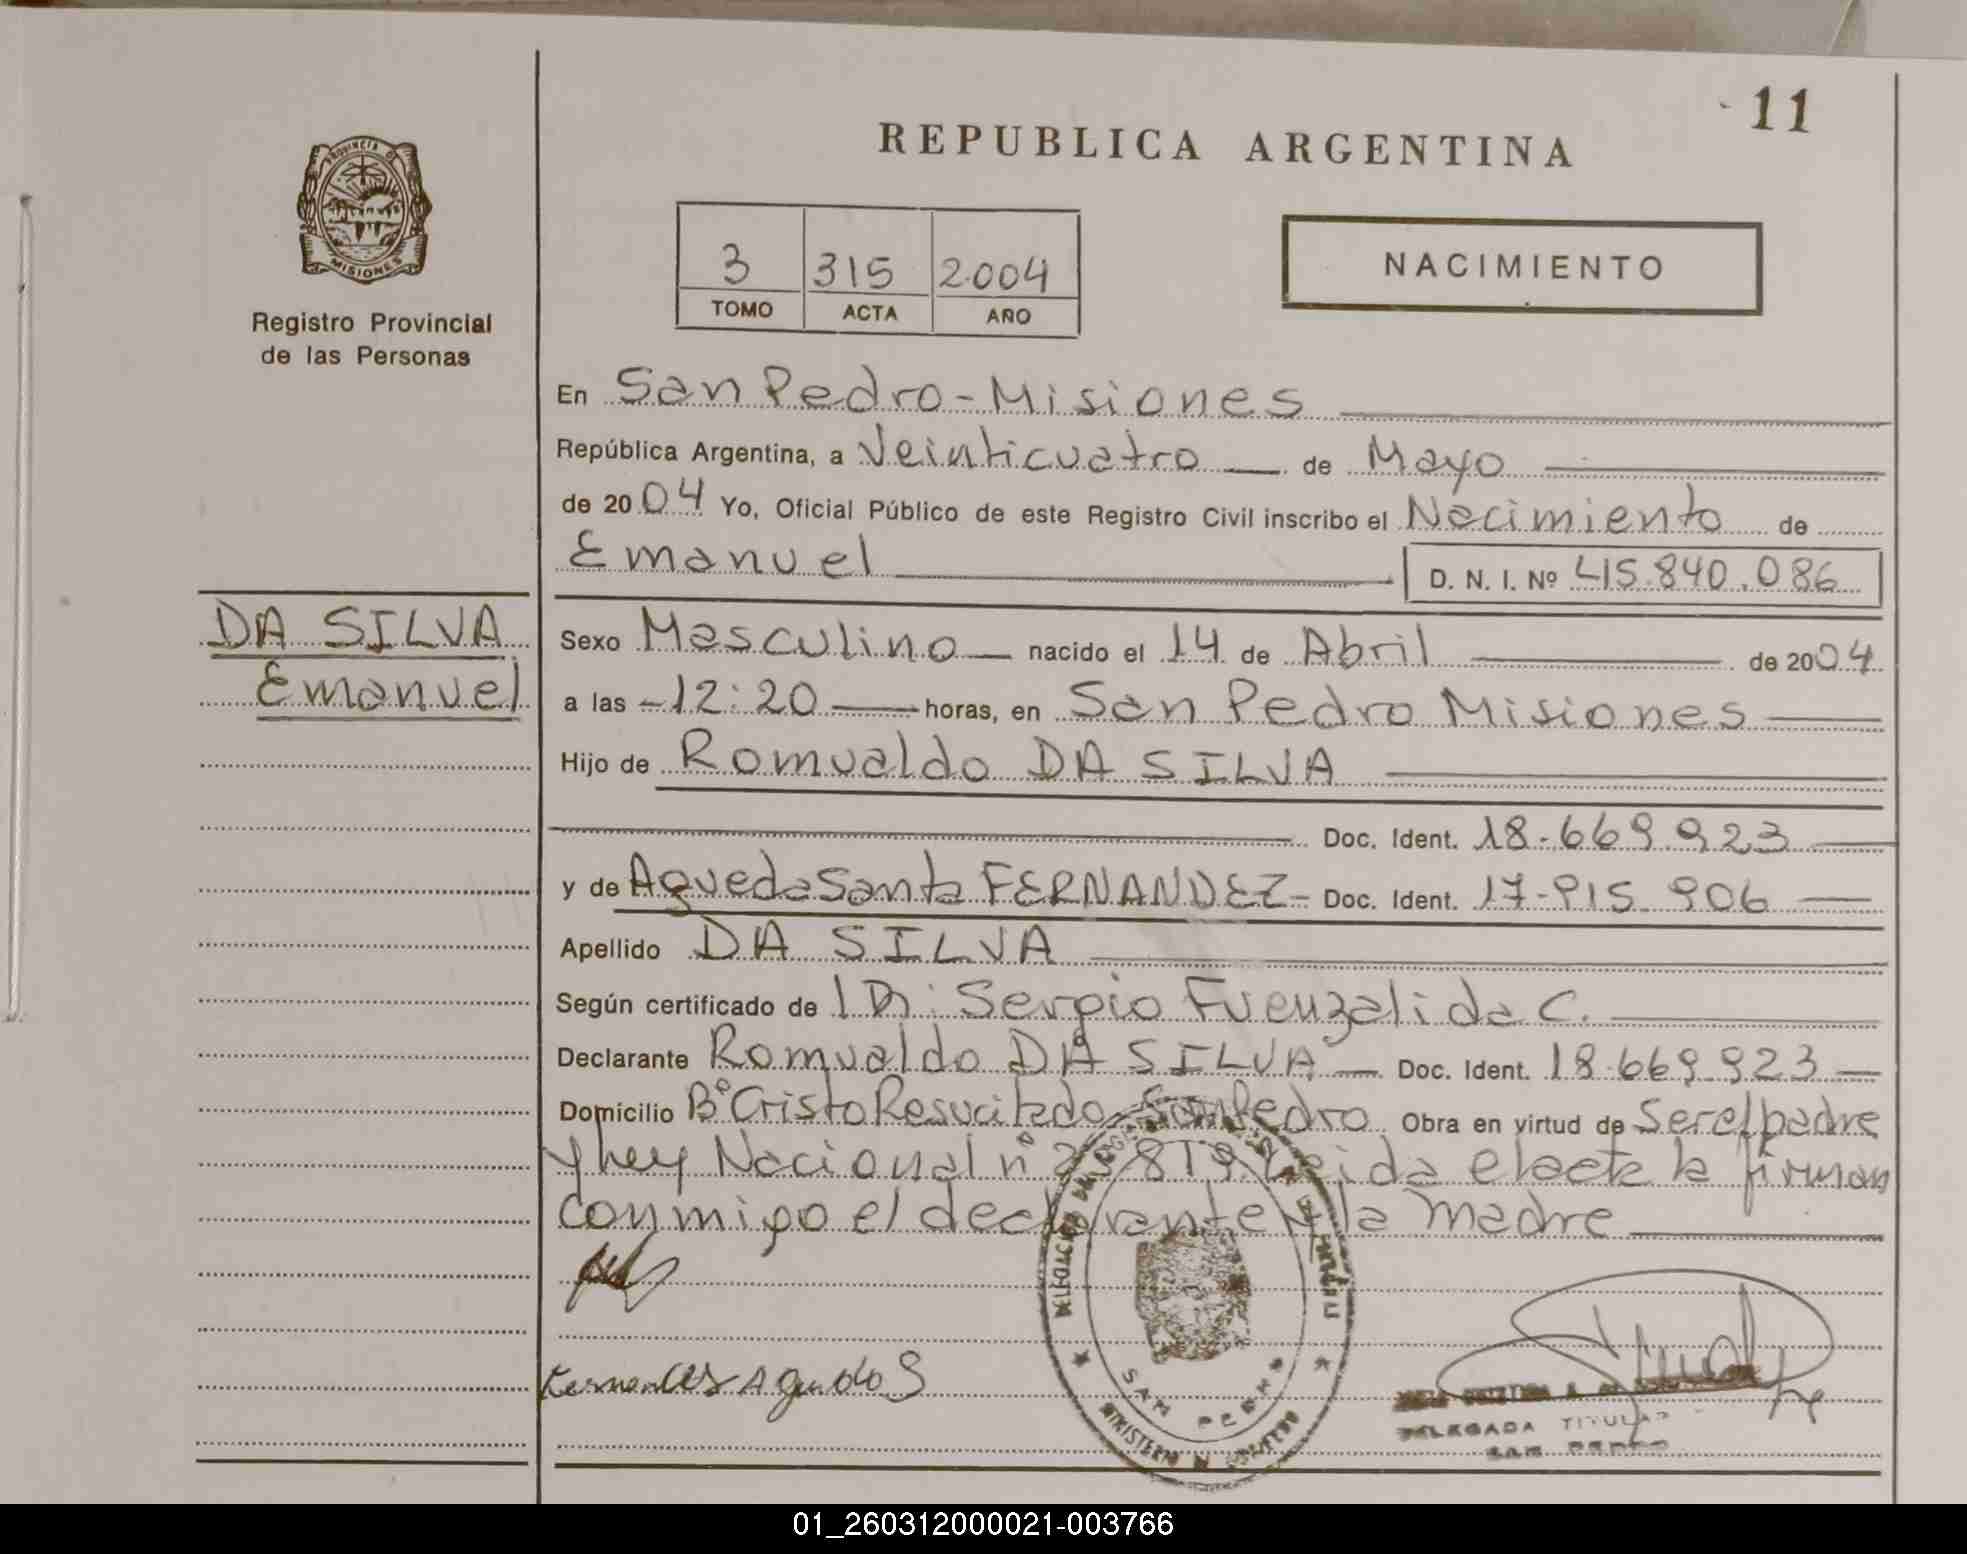 11
REPUBLICA ARGENTINA
PROVINCIA DE
MISIONES
Registro Provincial
de las Personas
3 315 2004
TOMO ACTA AÑO
NACIMIENTO
En San Pedro - Misiones
República Argentina, a Veinticuatro de Mayo
de 2004 Yo, Oficial Público de este Registro Civil inscribo el Nacimiento de
Emanuel D. N. I. Nº 45.840.086
DA SILVA
Emanuel
Sexo Masculino nacido el 14 de Abril de 2004
a las 12:20 horas, en San Pedro Misiones
Hijo de Romualdo DA SILVA
Doc. Ident. 18.669.923
y de Agueda Santa FERNANDEZ - Doc. Ident. 17.915.906
Apellido DA SILVA
Según certificado de Dr: Sergio Fuenzalida C.
Declarante Romualdo DA SILVA Doc. Ident. 18.669.923
Domicilio Bº Cristo Resucitado San Pedro Obra en virtud de Ser el padre
y ley Nacional nº 819. Leida el acta la firman
conmigo el declarante y la madre
Fernandez Agueda S
SAN PEDRO
MINISTERIO DE GOBIERNO
DELEGADA TITULAR
SAN PEDRO
01_260312000021-003766